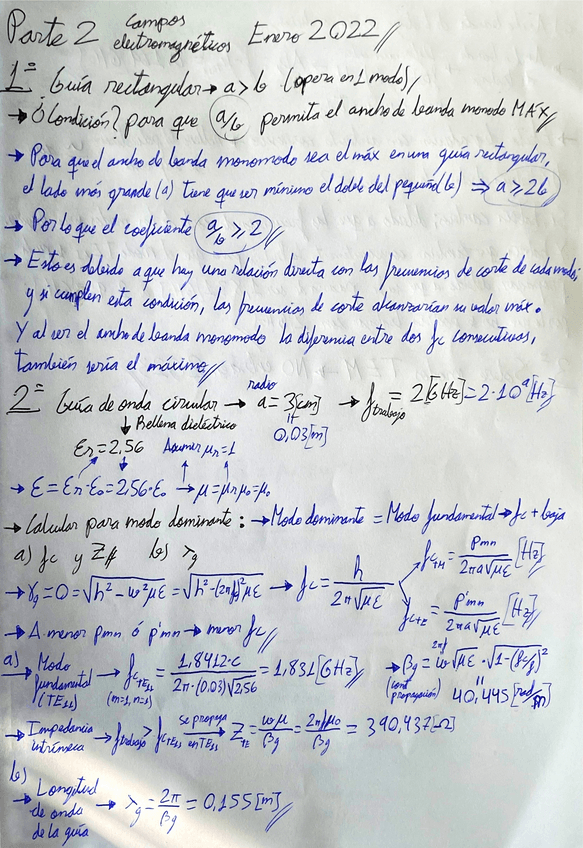 Parte 2 campos electromagnéticos Enero 2022//
1º Guía rectangular → a > b (opera en 1 modo)//
→ ¿Condición? para que a/b permita el ancho de banda monomodo MÁX//
→ Para que el ancho de banda monomodo sea el máx en una guía rectangular,
el lado más grande (a) tiene que ser mínimo el doble del pequeño (b) ⇒ a ≥ 2b
→ Por lo que el coeficiente a/b ≥ 2//
→ Esto es debido a que hay una relación directa con las frecuencias de corte de cada modo,
y si cumplen esta condición, las frecuencias de corte alcanzarían su valor máx.
Y al ser el ancho de banda monomodo la diferencia entre dos fc consecutivas,
también sería el máximo//
2º Guía de onda circular → radio a = 3[cm] → f trabajo = 2[GHz] = 2·10^9[Hz]
↓ Rellena dieléctrico = 0,03[m]
εr = 2,56 Asumir μr = 1
→ ε = εr·ε0 = 2,56·ε0 → μ = μrμ0 = μ0
→ Calcular para modo dominante: → Modo dominante = Modo fundamental → fc + baja
a) fc y Z// b) λg
→ γg = 0 = √(h² - w²με) = √(h² - (2πf)²με) → fc = h/(2π√με)
fcTM = Pmn/(2πa√με) [Hz]//
fcTE = P'mn/(2πa√με) [Hz]//
→ A menor pmn ó p'mn → menor fc//
a) → Modo fundamental (TE11) → fcTE11 (m=1, n=1) = 1,8412·c/(2π·(0.03)√2,56) = 1,831[GHz]//
→ βg = w√με·√(1-(fc/f)²) 2πf
(const propagación) = 40,445[rad/m]
→ Impedancia intrínseca → f trabajo > fcTE11 se propaga en TE11 → Z TE = wμ/βg = 2πfμ0/βg = 390,437[Ω]
b)
→ Longitud de onda de la guía → λg = 2π/βg = 0,155[m]//